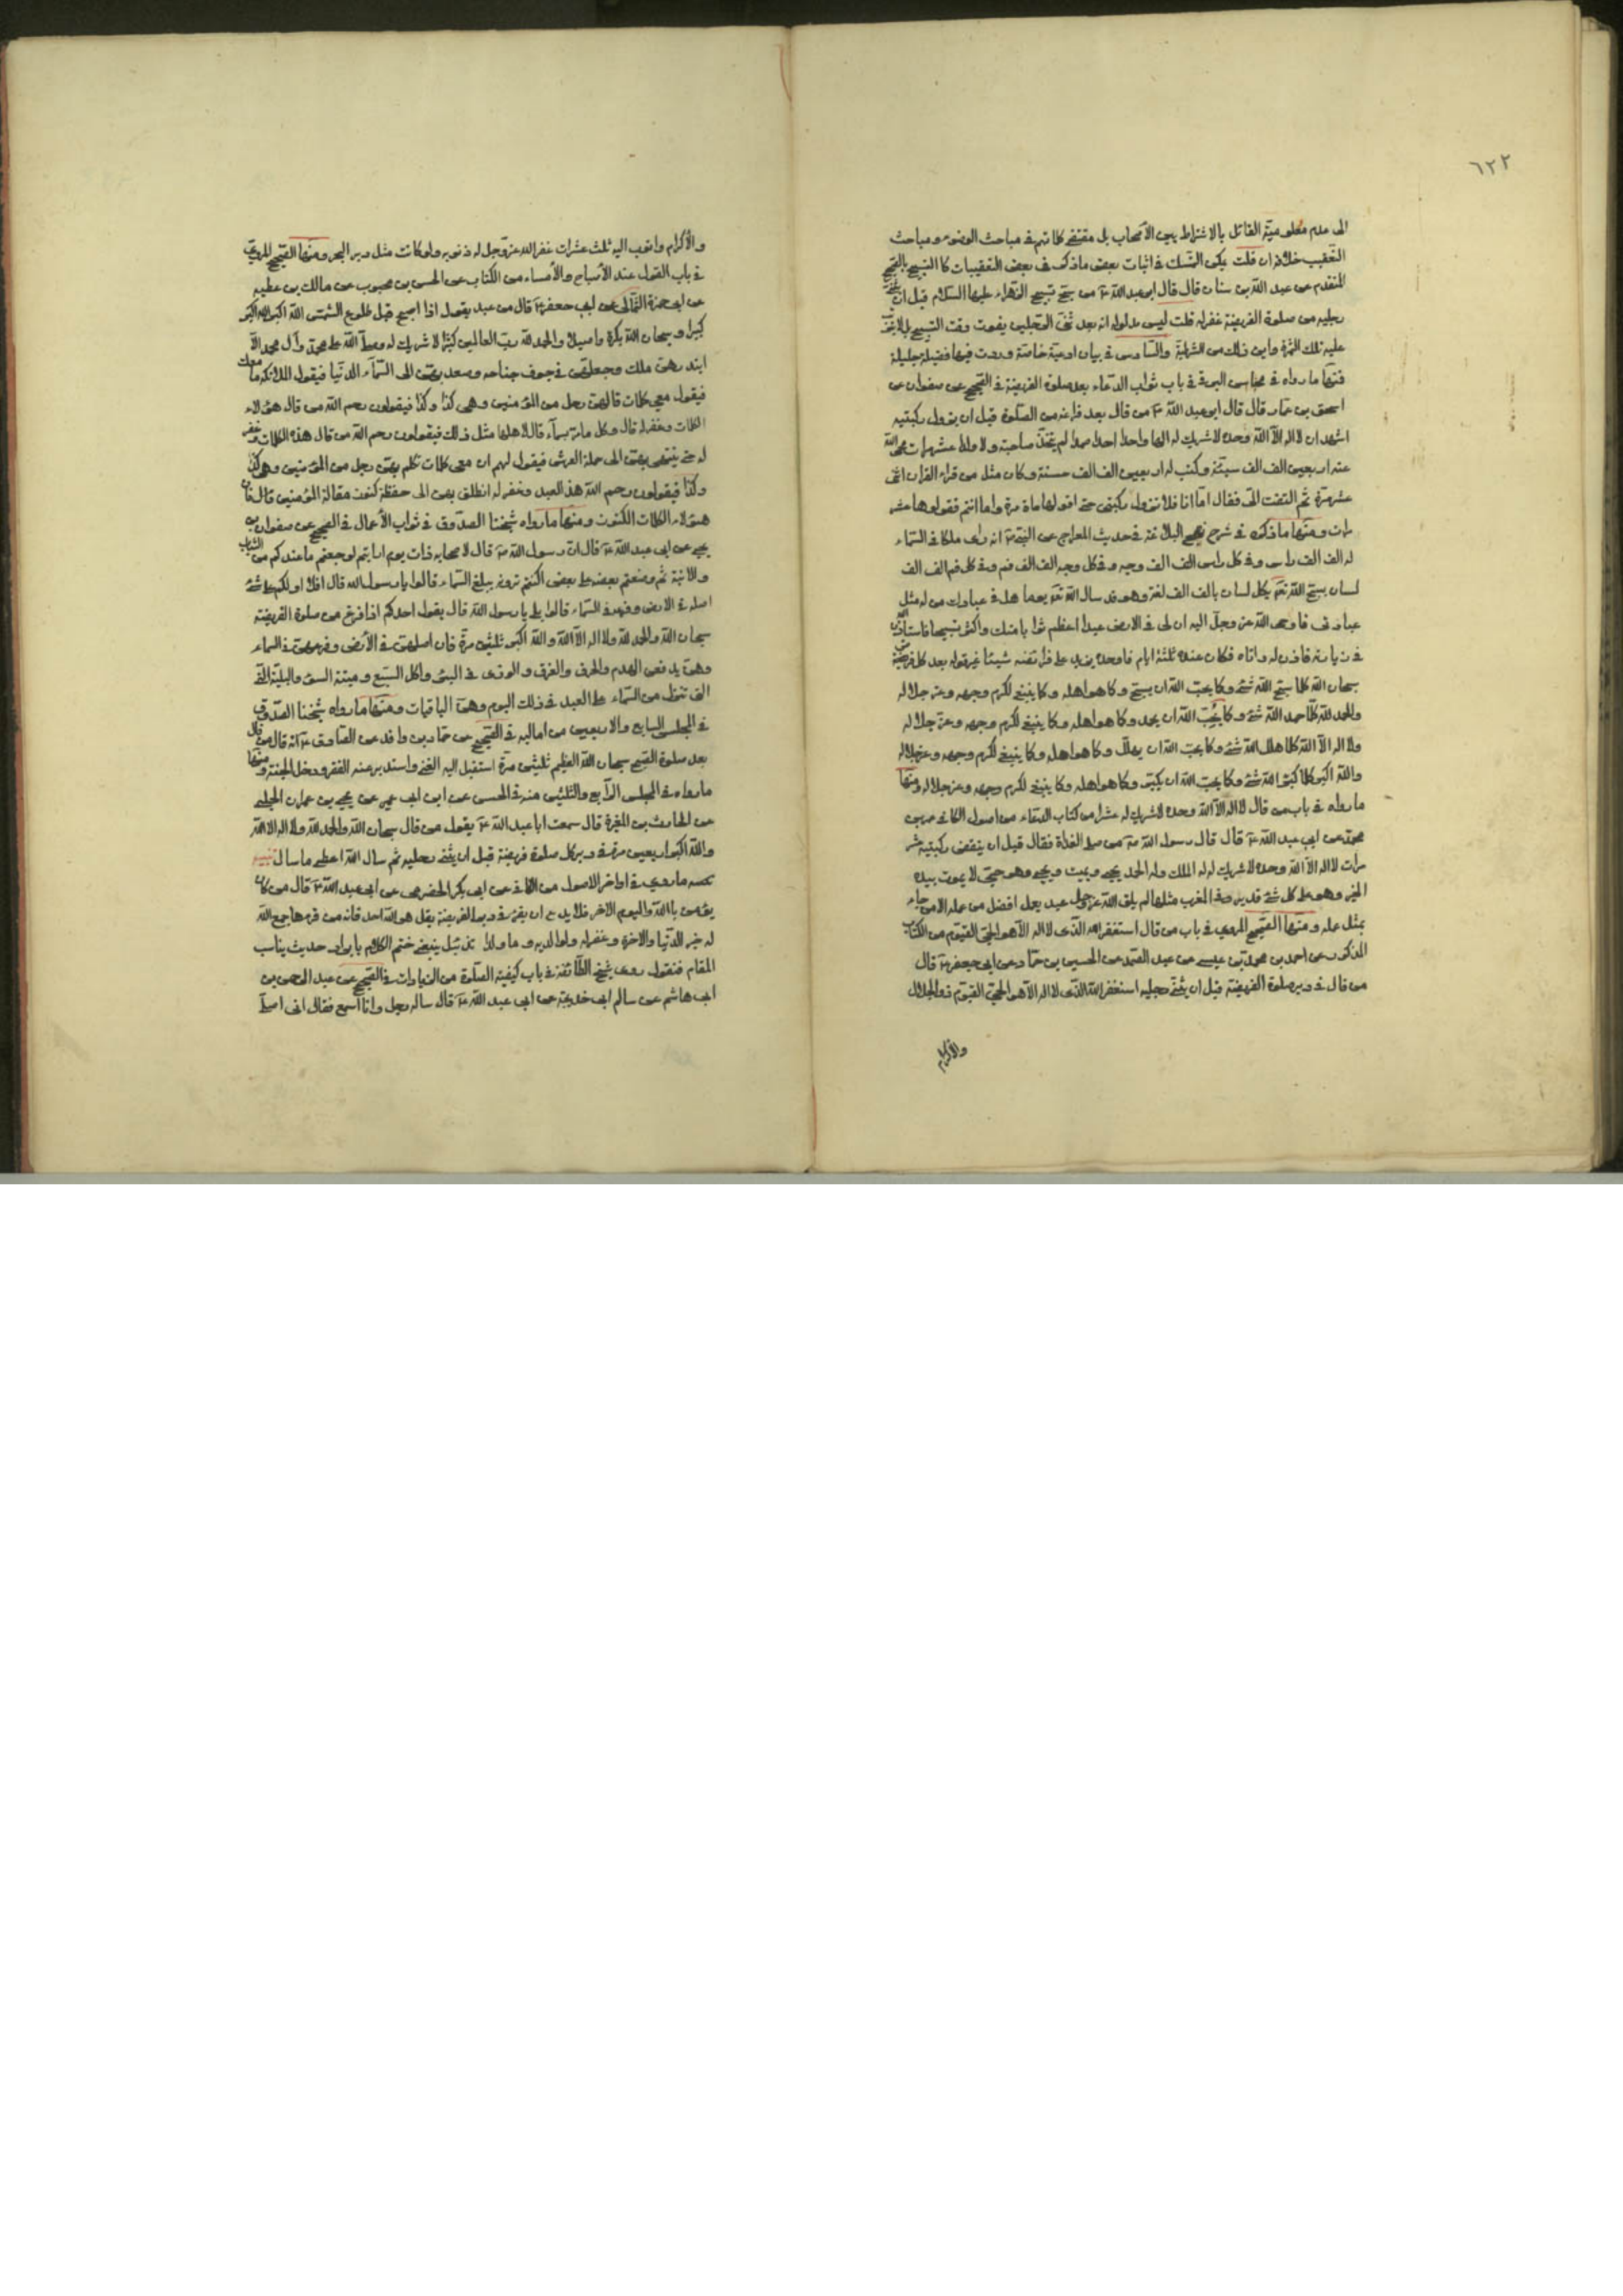 ٦٢٢
الى عدم معلومية القائل بالاشتراط بين الأصحاب بل مقتضى كلماتهم في مباحث الوضوء ومباحث
التعقيب خلافه ان قلت يمكن التمسك في اثبات بعض ما ذكر في بعض التعقيبات كالتسبيح بالصحيح
المتقدم عن عبد الله بن سنان قال قال ابو عبد الله ع من سبح تسبيح الزهراء عليها السلام قبل ان يثني
رجليه من صلوة الفريضة غفر له قلت ليس مدلوله انه بعد ثني الرجلين يفوت وقت التسبيح بل لا يترتب
عليه تلك الثمرة واين ذلك من الشرطية والسادس في بيان ادعية خاصة وردت فيها فضيلة جليلة
فمنها ما رواه في محاسن البرقي في باب ثواب الدعاء بعد صلوة الفريضة في الصحيح عن صفوان عن
اسحق بن عمار قال قال ابو عبد الله ع من قال بعد فراغه من الصلوة قبل ان يزول ركبتيه
اشهد ان لا اله الا الله وحده لا شريك له الها واحدا احدا صمدا لم يتخذ صاحبة ولا ولدا عشر مرات محى الله
عنه اربعين الف الف سيئة وكتب له اربعين الف الف حسنة وكان مثل من قراء القران اثنى
عشر مرة ثم التفت الى فقال اما انا فلا تزول ركبتى حتى اقولها مأة مرة واما انتم فقولوها عشر
مرات ومنها ما ذكره في شرح نهج البلاغة في حديث المعراج عن النبي ص انه راى ملكا في السماء
له الف الف راس وفي كل راس الف الف وجه وفي كل وجه الف الف فم وفي كل فم الف الف
لسان يسبح الله تعه بكل لسان بالف الف لغة وهو قد سال الله تعه يوما هل في عبادك من له مثل
عبادتى فاوحى الله عز وجل اليه ان لى في الارض عبدا اعظم ثوابا منك واكثر تسبيحا فاستاذن
في زيارته فاذن له واتاه فكان عنده ثلثة ايام فما وجده يزيد على فرائضه شيئا غير قوله بعد كل فريضة
سبحان الله كلما سبح الله شئ وكما يحب الله ان يسبح وكما هو اهله وكما ينبغى لكرم وجهه وعز جلاله
والحمد لله كلما حمد الله شئ وكما يحب الله ان يحمد وكما هو اهله وكما ينبغى لكرم وجهه وعز جلاله
ولا اله الا الله كلما هلل الله شئ وكما يحب الله ان يهلل وكما هو اهله وكما ينبغى لكرم وجهه وعز جلاله
والله اكبر كلما كبر الله شئ وكما يحب الله ان يكبر وكما هو اهله وكما ينبغى لكرم وجهه وعز جلاله ومنها
ما رواه في باب من قال لا اله الا الله وحده لا شريك له عشرا من كتاب الدعاء من اصول الكافى عن
محمد عن ابى عبد الله ع قال قال رسول الله ص من صلى الغداة فقال قبل ان ينقض ركبتيه عشر
مرات لا اله الا الله وحده لا شريك له له الملك وله الحمد يحيى ويميت ويميت ويحيى وهو حى لا يموت بيده
الخير وهو على كل شئ قدير وفي المغرب مثلها لم يلق الله عز وجل عبد بعمل افضل من عمله الا من جاء
بمثل عمله ومنها الصحيح المروي في باب من قال استغفر الله الذى لا اله الا هو الحى القيوم من الكتاب
المذكور عن احمد بن محمد بن عيسى عن عبد الصمد عن الحسين بن حماد عن ابى جعفر ع قال
من قال في دبر صلوة الفريضة قبل ان يثنى رجليه استغفر الله الذى لا اله الا هو الحى القيوم ذو الجلال
والاكرام
والأكرام واتوب اليه ثلث مرات غفر الله عز وجل له ذنوبه ولو كانت مثل زبد البحر ومنها الصحيح المروي
في باب القول عند الأصباح والأمساء من الكتاب عن الحسن بن محبوب عن مالك بن عطية
عن ابى حمزة الثمالى عن ابى جعفر ع قال من عبد يقول اذا اصبح قبل طلوع الشمس الله اكبر الله اكبر
كبيرا وسبحان الله بكرة واصيلا والحمد لله رب العالمين كثيرا لا شريك له وصلى الله على محمد وآل محمد الا
ابتدرهن ملك وجعلهن في جوف جناحه وصعد بهن الى السماء الدنيا فيقول الملائكة ما معك
فيقول معى كلمات قالهن رجل من المؤمنين وهى كذا وكذا فيقولون رحم الله من قال هؤلاء
الكلمات وغفر له قال وكل ما مر بسماء قال لاهلها مثل ذلك فيقولون رحم الله من قال هذه الكلمات وغفر
له حتى ينتهى بهن الى حملة العرش فيقول لهم ان معى كلمات تكلم بهن رجل من المؤمنين وهى كذا
وكذا فيقولون رحم الله هذا العبد وغفر له انطلق بهن الى حفظة كنوز مقالة المؤمنين قال فان
هؤلاء الكلمات الكنوز ومنها ما رواه شيخنا الصدوق في ثواب الأعمال في الصحيح عن صفوان بن
يحيى عن ابى عبد الله ع قال ان رسول الله ص قال لاصحابه ذات يوم ارايتم لو جمعتم ما عندكم من الثياب
والانية ثم وضعتم بعضه على بعض اكنتم ترونه يبلغ السماء قالوا يا رسول الله قال افلا ادلكم على شئ
اصله في الارض وفرعه في السماء قالوا بلى يا رسول الله قال يقول احدكم اذا فرغ من صلوة الفريضة
سبحان الله والحمد لله ولا اله الا الله والله اكبر ثلثين مرة فان اصلهن في الأرض وفرعهن في السماء
وهن يدفعن الهدم والحرق والغرق والتردى في البئر واكل السبع وميتة السوء والبلية التى
التى تنزل من السماء على العبد في ذلك اليوم وهن الباقيات ومنها ما رواه شيخنا الصدوق
في المجلس السابع والاربعين من اماليه في الصحيح عن حماد بن واقد عن الصادق ع انه قال من قال
بعد صلوة الصبح سبحان الله العظيم ثلثين مرة استقبل اليه الغنى واستدبر عنه الفقر ودخل الجنة ومنها
ما رواه في المجلس الرابع والثلثين منه في الحسن عن ابن ابى عمير عن يحيى بن عمران الحلبى
عن الحارث بن المغيرة قال سمعت ابا عبد الله ع يقول من قال سبحان الله والحمد لله ولا اله الا الله
والله اكبر اربعين مرة في دبر كل صلوة فريضة قبل ان يثنى رجليه ثم سال الله اعطى ما سال
ما روي في اواخر الاصول من الكافى عن ابى بكر الحضرمى عن ابى عبد الله ع قال من كان
يؤمن بالله واليوم الاخر فلا يدع ان يقرء في دبر الفريضة بقل هو الله احد فانه من قرءها جمع الله
له خير الدنيا والاخرة وغفر له ولوالديه وما ولدا تذييل ينبغى ختم الكلام بايراد حديث يناسب
المقام فنقول روى شيخ الطائفة في باب كيفية الصلوة من الزيادات في الصحيح عن عبد الرحمن بن
ابى هاشم عن سالم ابى خديجة عن ابى عبد الله ع قال ساله رجل وانا اسمع فقال انى اصلى